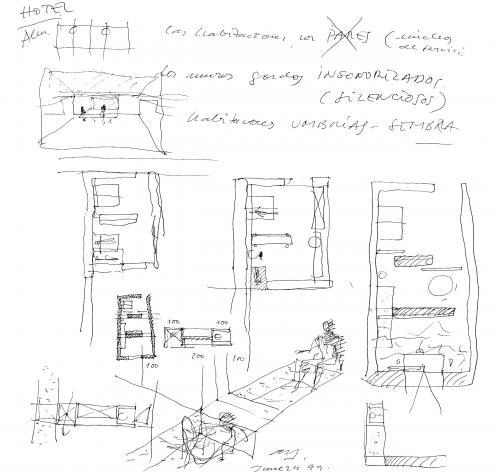 HOTEL
Alm.
Las habitaciones, por PARES (núcleos
de servicio
Los muros gordos INSONORIZADOS
(SILENCIOSOS)
habitaciones UMBRIAS - SOMBRA
100 100
100 200 100
99.